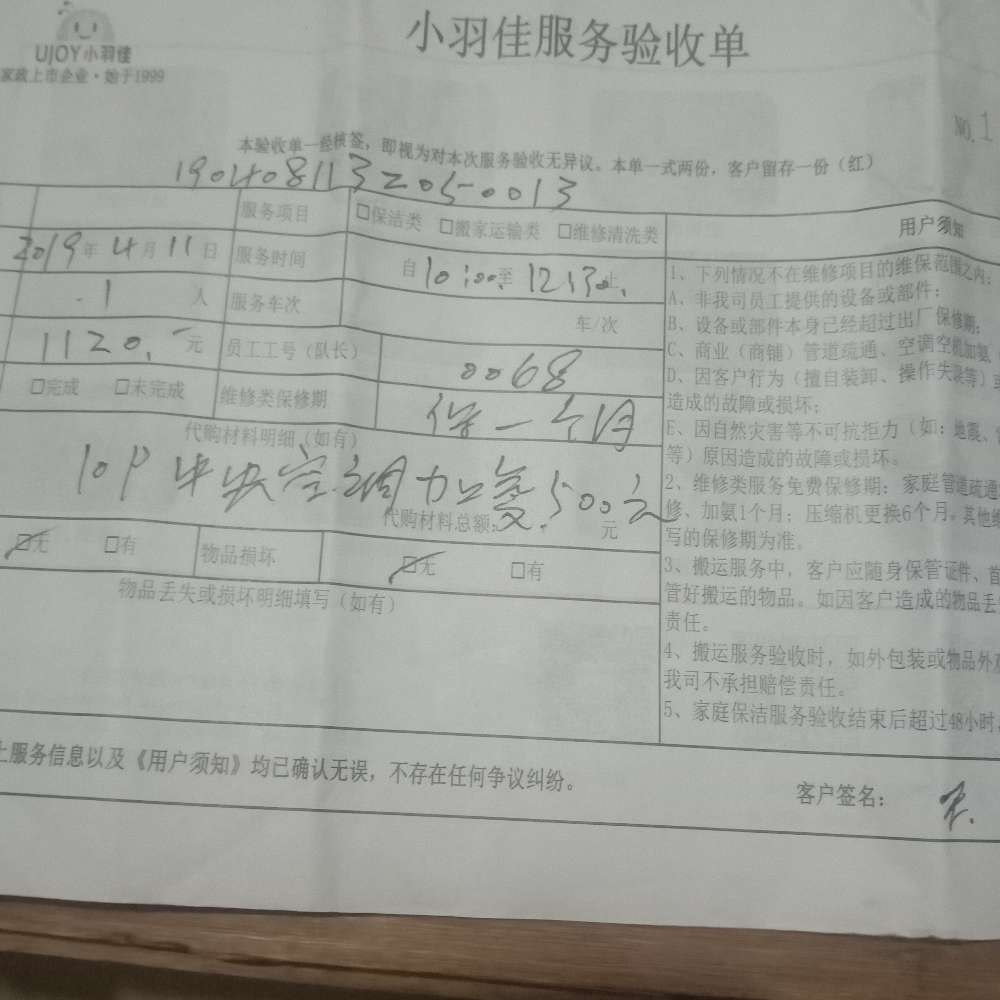 UJOY小羽佳
家政上市企业·始于1999
小羽佳服务验收单
NO.1
本验收单一经核签，即视为对本次服务验收无异议。本单一式两份，客户留存一份（红）
190408113205-0013
服务项目 □保洁类 □搬家运输类 □维修清洗类
2019年4月11日 服务时间 自10:00至12:30止
1人 服务车次 车/次
1120.-元 员工工号（队长） 0068
□完成 □未完成 维修类保修期 保一个月
代购材料明细（如有）
10P中央空调加氨500元
代购材料总额: 元
☑无 □有 物品损坏 ☑无 □有
物品丢失或损坏明细填写（如有）
用户须知
1、下列情况不在维修项目的维保范围之内：
A、非我司员工提供的设备或部件；
B、设备或部件本身已经超过出厂保修期；
C、商业（商铺）管道疏通、空调空机加氨、
D、因客户行为（擅自装卸、操作失误等）
造成的故障或损坏；
E、因自然灾害等不可抗拒力（如：地震、
等）原因造成的故障或损坏。
2、维修类服务免费保修期：家庭管道疏通
修、加氨1个月；压缩机更换6个月。其他维
写的保修期为准。
3、搬运服务中，客户应随身保管证件、首
管好搬运的物品。如因客户造成的物品丢
责任。
4、搬运服务验收时，如外包装或物品外
我司不承担赔偿责任。
5、家庭保洁服务验收结束后超过48小时，
上服务信息以及《用户须知》均已确认无误，不存在任何争议纠纷。
客户签名：